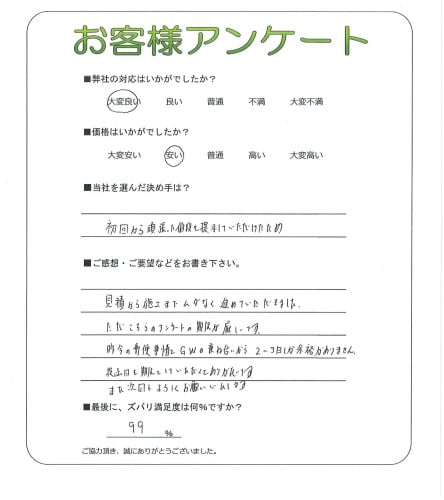 お客様アンケート
■弊社の対応はいかがでしたか？
大変良い 良い 普通 不満 大変不満
■価格はいかがでしたか？
大変安い 安い 普通 高い 大変高い
■当社を選んだ決め手は？
初回から頑張った値段を提示していただけたため
■ご感想・ご要望などをお書き下さい。
見積から施工までムダなく進めていただきました。
ただこちらのアンケートの期限が厳しいです。
昨今の郵便事情とGWの兼ね合いから2〜3日しか余裕がありません。
投函日を期限としていただくとありがたいです
また次回もよろしくお願いいたします
■最後に、ズバリ満足度は何%ですか？
99 %
ご協力頂き、誠にありがとうございました。